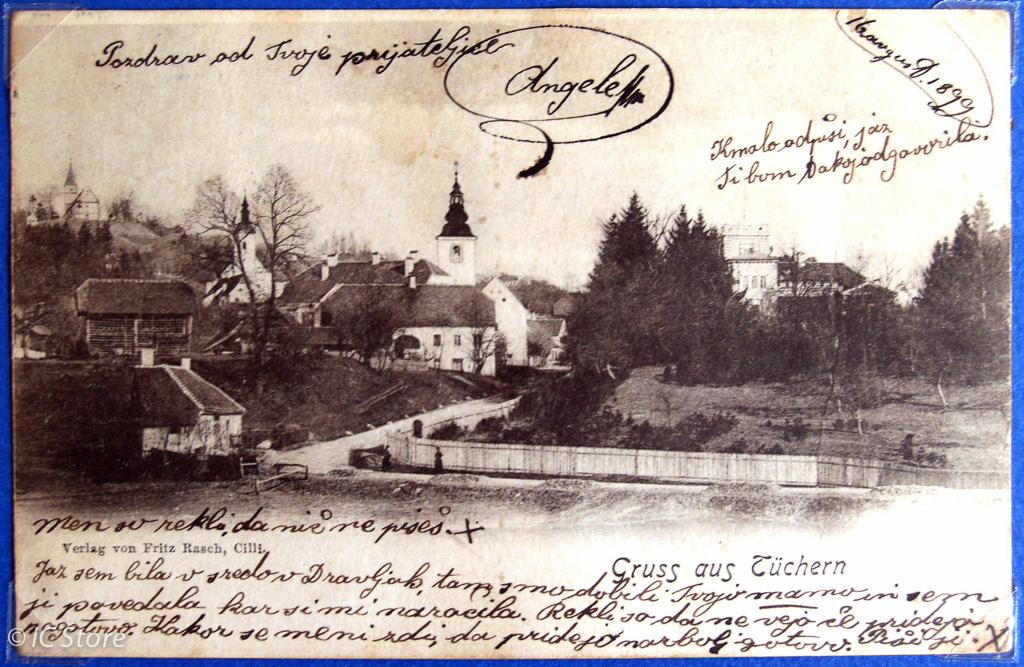 Pozdrav od Tvoje prijateljice
Angele
16 avgus 1899
Kmalo odpiši, jaz
Ti bom takoj odgovorila.
Men so rekli, da nič ne pišeš. x
Verlag von Fritz Rasch, Cilli.
Gruss aus Tüchern
Jaz sem bila v sredo v Dravljah, tam smo dobili Tvojo mamo in sem
ji povedala kar si mi naročila. Rekli so da ne vejo če pridejo
gotovo. Kakor se meni zdi, da pridejo narbolj gotovo. Piši ji. X
© IC Store